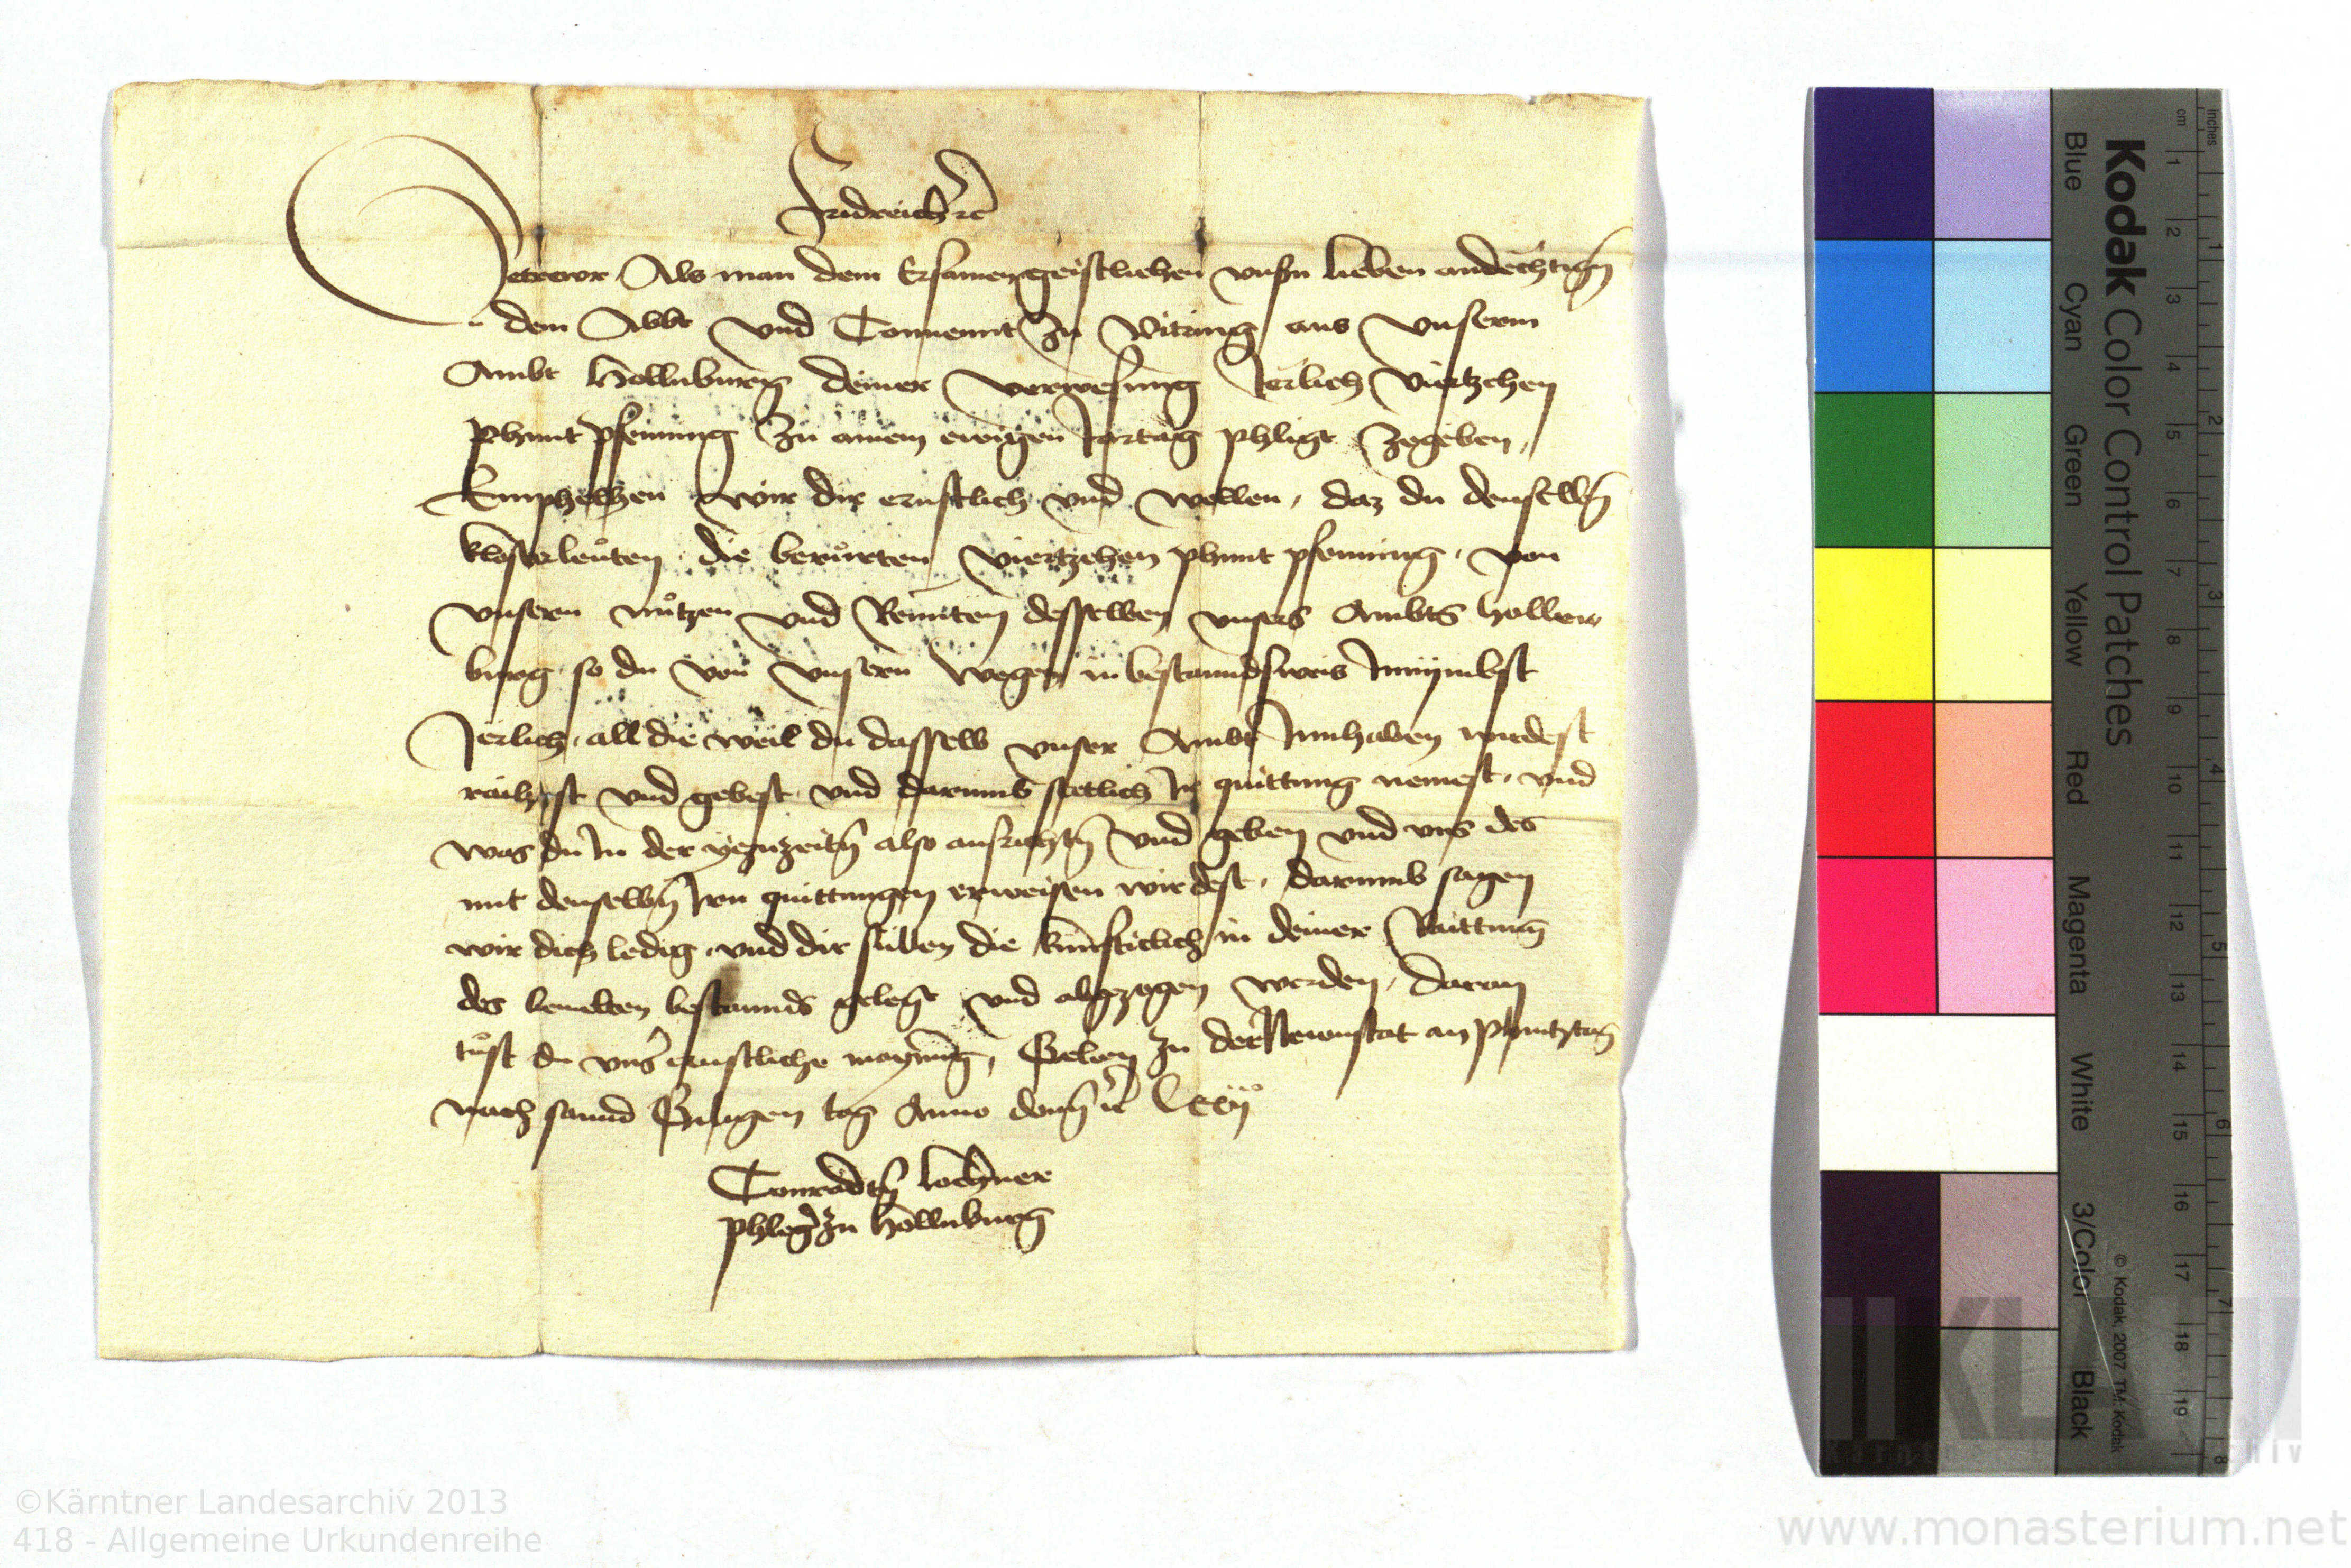 Fridreich etc
Getrewr Als man dem Ersamen geistlichen unsñ lieben andechtigñ
dem Abbt und Conuennt zu Vitring aus unserm
Ambt Hollnburg deiner verwesung Jerlich viertzehen
phunt pfenning zu ainem ewigen Jartag phligt zegeben,
Emphelhen wir dir ernstlich und wellen, daz du denselbñ
klosterleůten die berůrten viertzehen phunt pfenning, von
unsern nůtzen und Rennten desselben unsers Ambts hollen
burg so du von unsern wegen in bestanndsweis Innymbst
Jerlich, all die weil du dasselb unser Ambt Innhaben wirdest
raihest und gebest und darumb stetlich Ir quittung nemest, und
was du In der yezuzeitñ also ausrichtñ und geben und uns des
mit denselbñ Irn quittungen erweisen wirdest, darumb sagen
wir dich ledig, und dir sullen die kunfticlich in deiner Raittung
des benebben bestannds gelegt und abgezogen werden, daran
tůst du unser ernstliche maynung, Geben zu der Newnstat an Phintztag
nach sannd Giligen tag Anno domñ etc Lxxijo
Conradtñ lochner
phleger zu hollnburg
Kodak Color Control Patches
Blue Cyan Green Yellow Red Magenta White 3/Color Black
© Kodak, 2007 TM: Kodak
inches 1 2 3 4 5 6 7 8
cm 1 2 3 4 5 6 7 8 9 10 11 12 13 14 15 16 17 18 19
©Kärntner Landesarchiv 2013
418 - Allgemeine Urkundenreihe
www.monasterium.net